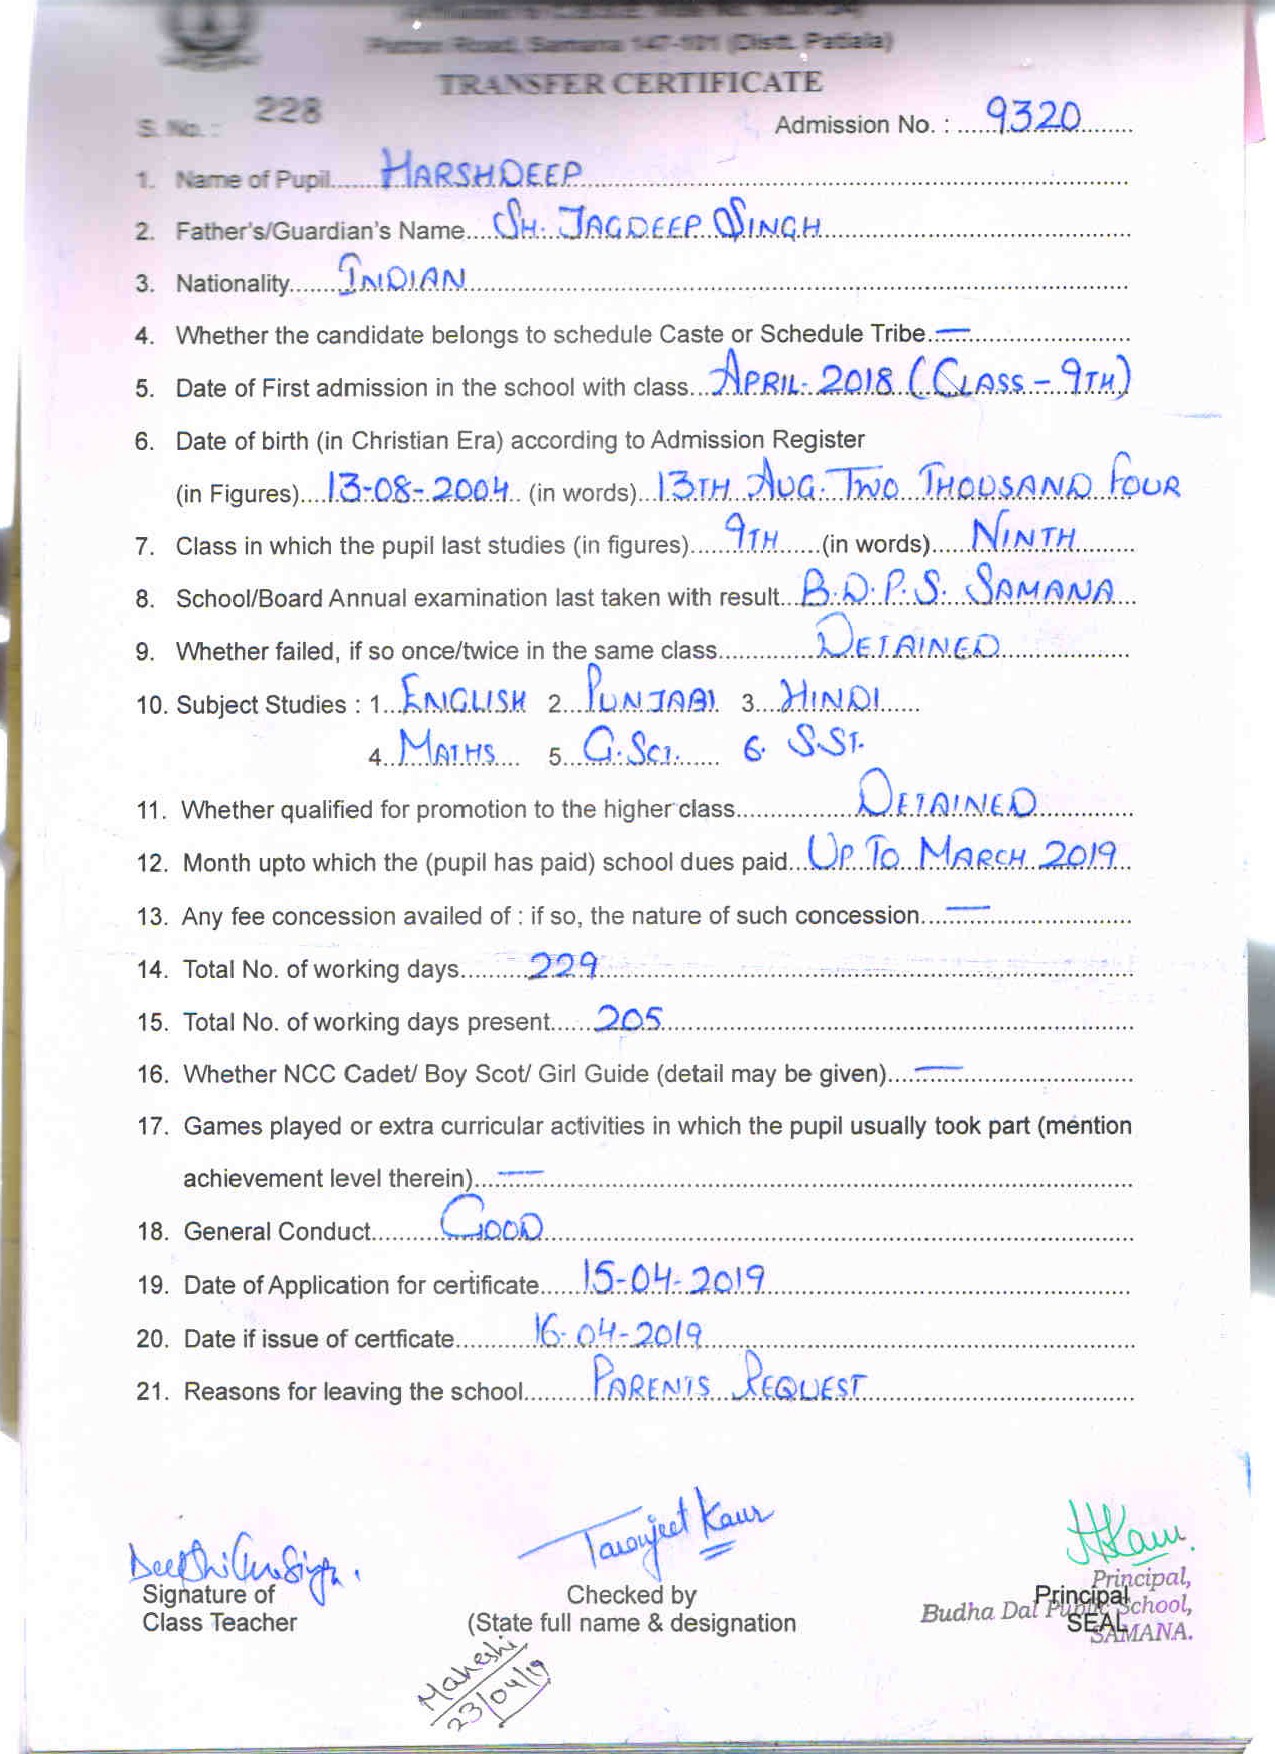 Patran Road, Samana 147-101 (Distt. Patiala)
TRANSFER CERTIFICATE
S. No. : 228 Admission No. : ......9320........
1. Name of Pupil......HARSHDEEP......
2. Father's/Guardian's Name....SH. JAGDEEP SINGH......
3. Nationality.......INDIAN......
4. Whether the candidate belongs to schedule Caste or Schedule Tribe.—......
5. Date of First admission in the school with class...APRIL. 2018 (CLASS - 9TH)
6. Date of birth (in Christian Era) according to Admission Register
(in Figures)....13-08-2004.. (in words)...13TH AUG. TWO THOUSAND FOUR
7. Class in which the pupil last studies (in figures)......9TH......(in words).....NINTH........
8. School/Board Annual examination last taken with result...B.D.P.S. SAMANA...
9. Whether failed, if so once/twice in the same class.............DETAINED......
10. Subject Studies : 1...ENGLISH 2...PUNJABI 3....HINDI......
4..MATHS.... 5...G.SCI....... 6. S.ST.
11. Whether qualified for promotion to the higher class...............DETAINED......
12. Month upto which the (pupil has paid) school dues paid...UP TO MARCH 2019..
13. Any fee concession availed of : if so, the nature of such concession....—......
14. Total No. of working days.........229......
15. Total No. of working days present......205......
16. Whether NCC Cadet/ Boy Scot/ Girl Guide (detail may be given)....—......
17. Games played or extra curricular activities in which the pupil usually took part (mention
achievement level therein)...—......
18. General Conduct..........GOOD......
19. Date of Application for certificate......15-04-2019......
20. Date if issue of certficate...........16-04-2019......
21. Reasons for leaving the school.........PARENTS REQUEST......
Taranjeet Kaur
Signature of Checked by Principal
Class Teacher (State full name & designation SEAL
Principal,
Budha Dal Public School,
SAMANA.
Maheshi
23/04/19